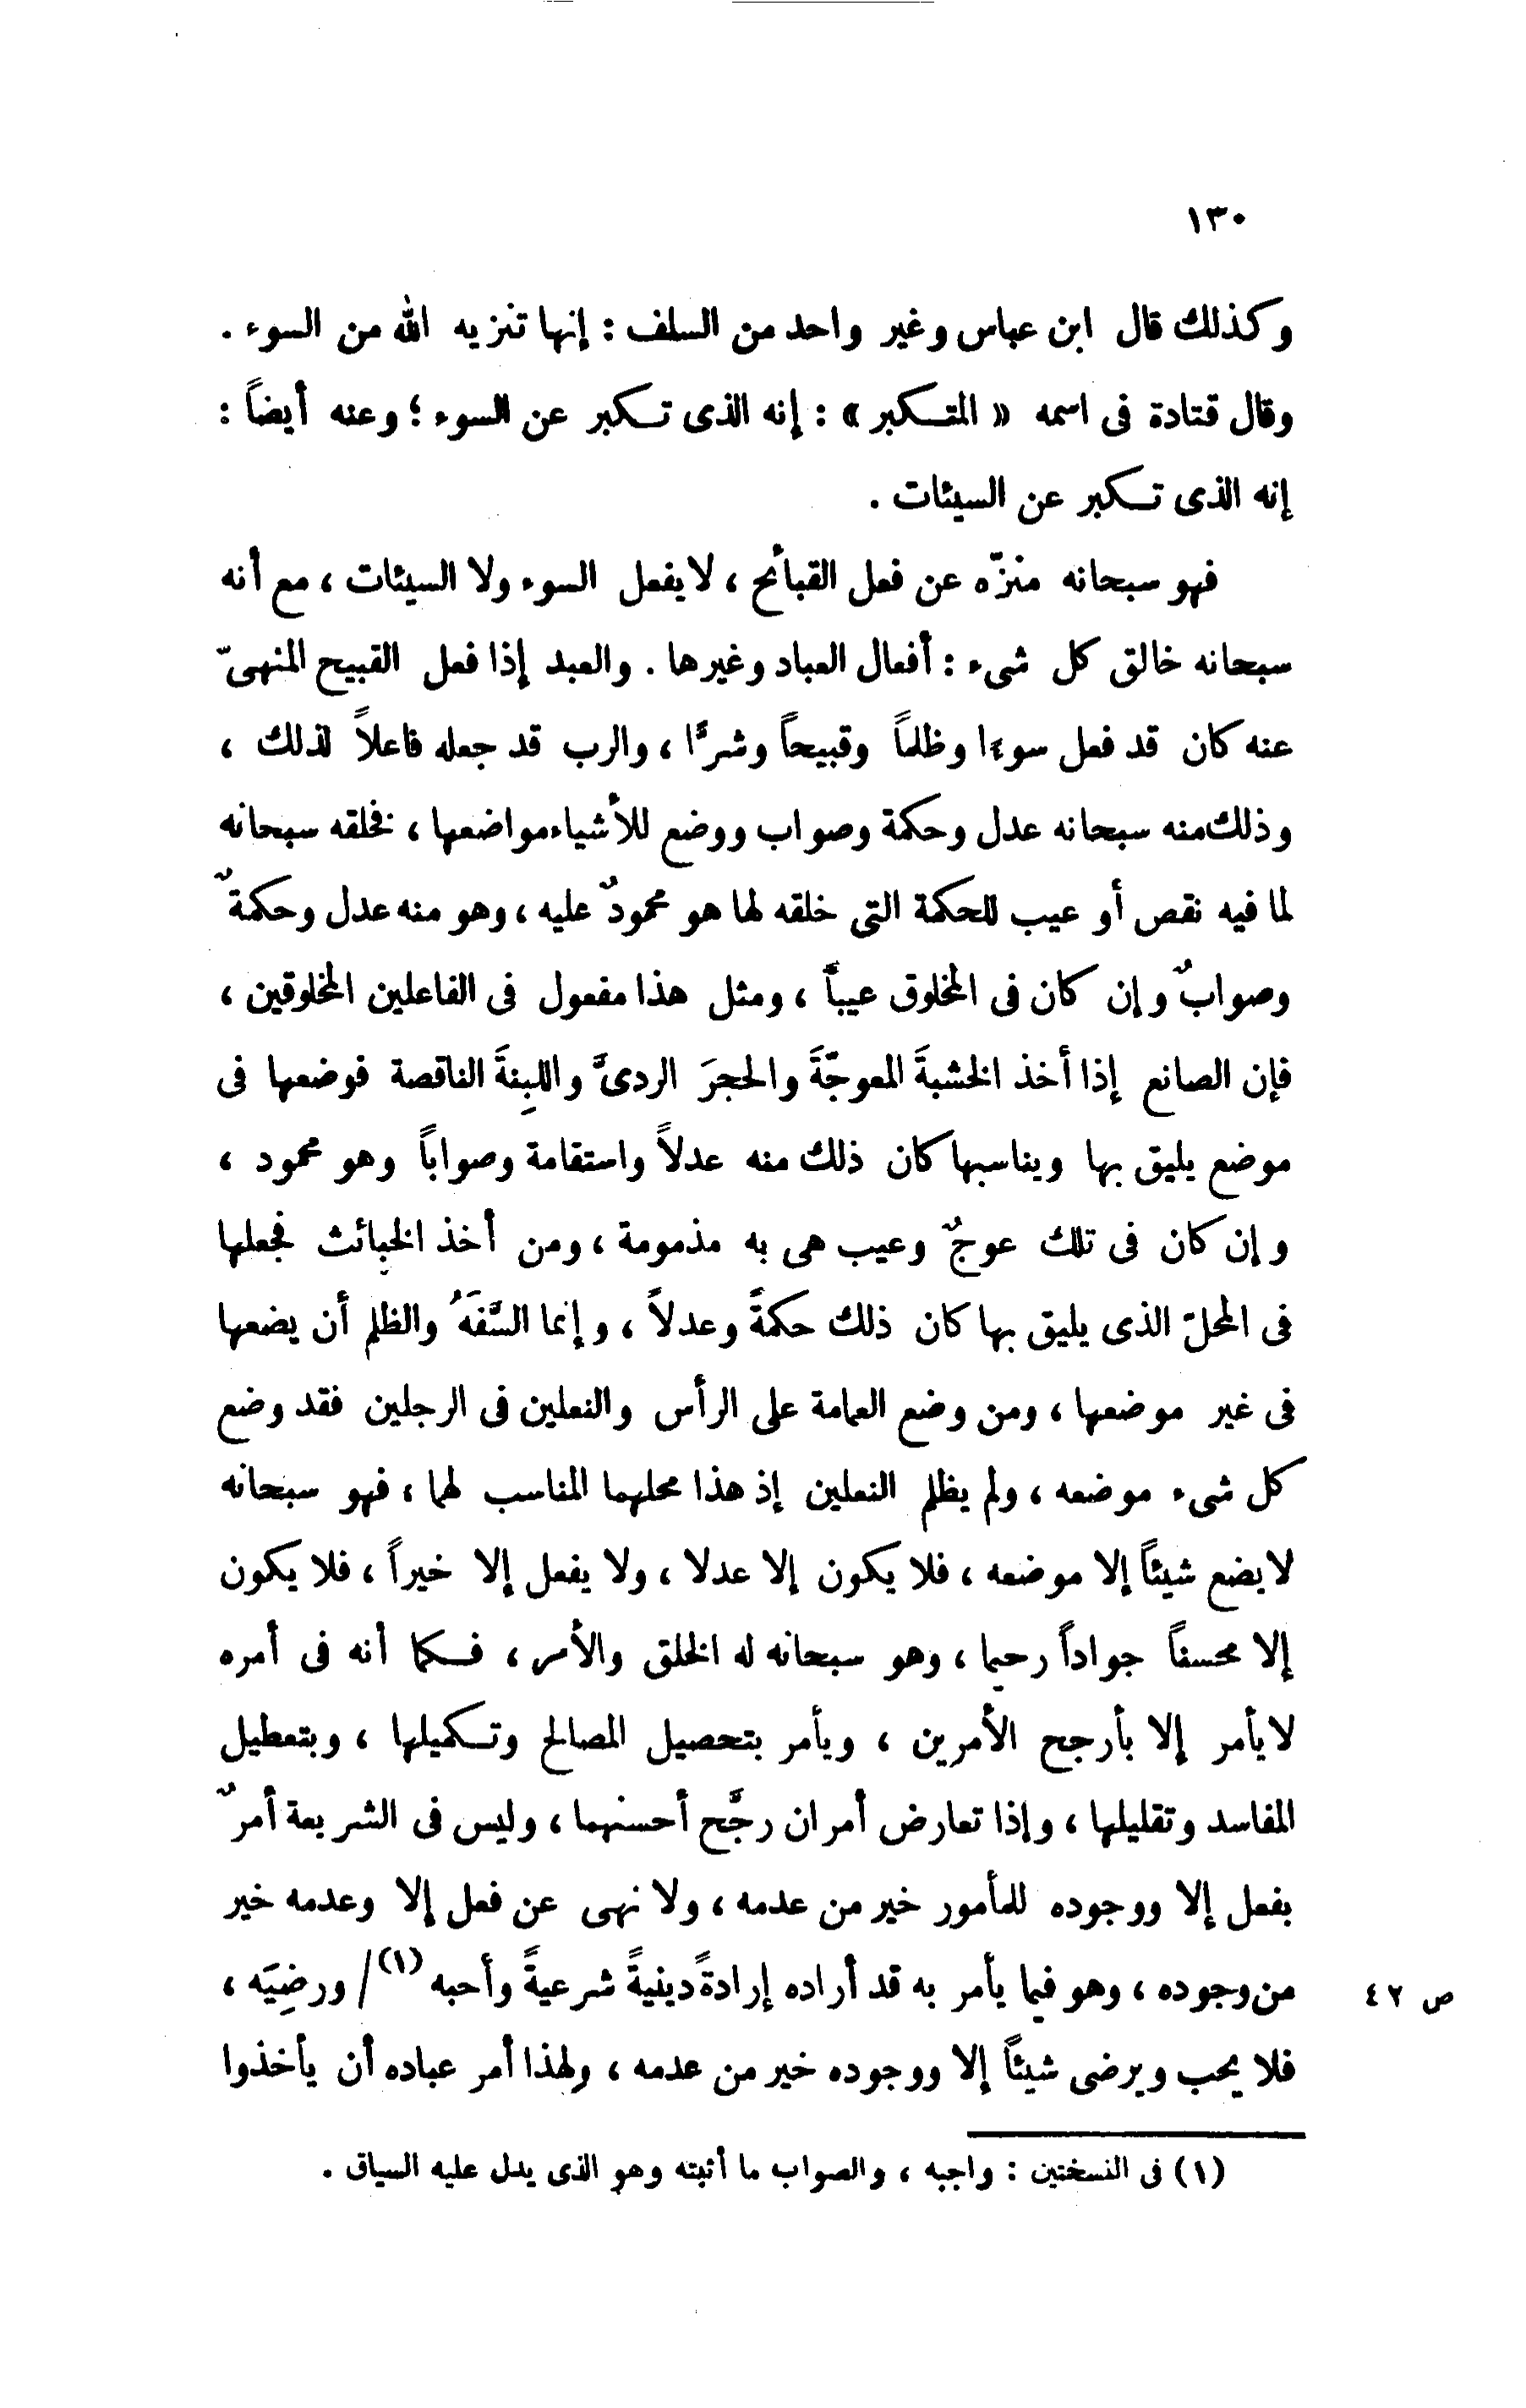 ١٣٠
وكذلك قال ابن عباس وغير واحد من السلف : إنها تنزيه الله من السوء .
وقال قتادة فى اسمه « المتكبر » : إنه الذى تكبر عن السوء ؛ وعنه أيضاً :
إنه الذى تكبر عن السيئات .
فهو سبحانه منزّه عن فعل القبائح ، لا يفعل السوء ولا السيئات ، مع أنه
سبحانه خالق كل شىء : أفعال العباد وغيرها . والعبد إذا فعل القبيح المنهىّ
عنه كان قد فعل سوءًا وظلماً وقبيحاً وشرًّا ، والرب قد جعله فاعلاً لذلك ،
وذلك منه سبحانه عدل وحكمة وصواب ووضع للأشياء مواضعها ، فخلقه سبحانه
لما فيه نقص أو عيب للحكمة التى خلقه لها هو محمودٌ عليه ، وهو منه عدل وحكمةٌ
وصوابٌ وإن كان فى المخلوق عيباً ، ومثل هذا مفعول فى الفاعلين المخلوقين ،
فإن الصانع إذا أخذ الخشبةَ المعوجّةَ والحجرَ الردىَّ واللبِنةَ الناقصة فوضعها فى
موضع يليق بها ويناسبها كان ذلك منه عدلاً واستقامة وصواباً وهو محمود ،
وإن كان فى تلك عوجٌ وعيب هى به مذمومة ، ومن أخذ الخبائث فجعلها
فى المحلّ الذى يليق بها كان ذلك حكمةً وعدلاً ، وإنما السَّفَهُ والظلم أن يضعها
فى غير موضعها ، ومن وضع العمامة على الرأس والنعلين فى الرجلين فقد وضع
كل شىء موضعه ، ولم يظلم النعلين إذ هذا محلهما المناسب لهما ، فهو سبحانه
لا يضع شيئاً إلا موضعه ، فلا يكون إلا عدلا ، ولا يفعل إلا خيراً ، فلا يكون
إلا محسناً جواداً رحيما ، وهو سبحانه له الخلق والأمر ، فكما أنه فى أمره
لا يأمر إلا بأرجح الأمرين ، ويأمر بتحصيل المصالح وتكميلها ، وبتعطيل
المفاسد وتقليلها ، وإذا تعارض أمران رجَّح أحسنهما ، وليس فى الشريعة أمرٌ
بفعل إلا ووجوده للمأمور خير من عدمه ، ولا نهى عن فعل إلا وعدمه خير
من وجوده ، وهو فيما يأمر به قد أراده إرادةً دينيةً شرعيةً وأحبه (١) / ورضِيَه ، ص ٤٢
فلا يحب ويرضى شيئاً إلا ووجوده خير من عدمه ، ولهذا أمر عباده أن يأخذوا
(١) فى النسختين : واجبه ، والصواب ما أثبته وهو الذى يدل عليه السياق .